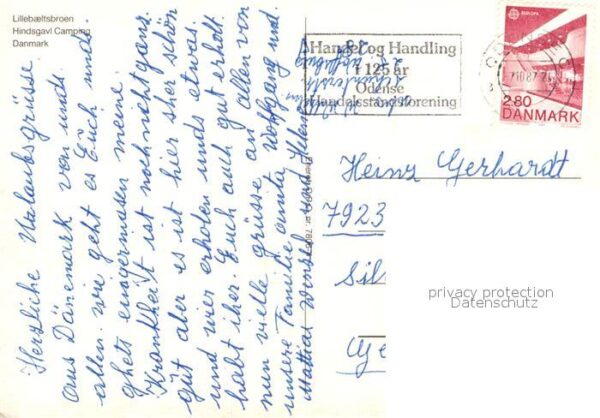 Lillebæltsbroen
Hindsgavl Camping
Danmark
Herzliche Urlaubsgrüsse
aus Dänemark von uns
allen. wie geht es Euch und.
ghets einigermasen meine
Krankheit ist noch net ganz.
gut aber es ist hier sher schön
und wier erholen und etwas.
habt iher. Euch auch gut erholt.
nun vielle grüsse an allen von
unsere Familie anita Wolfgang und.
Mattias Winkel und Helen
Handel og Handling
i 125 år
Odense
Handelsstandsforening
EUROPA
2.80
DANMARK
Heinz Gerhardt
7923
Sil
privacy protection
Datenschutz